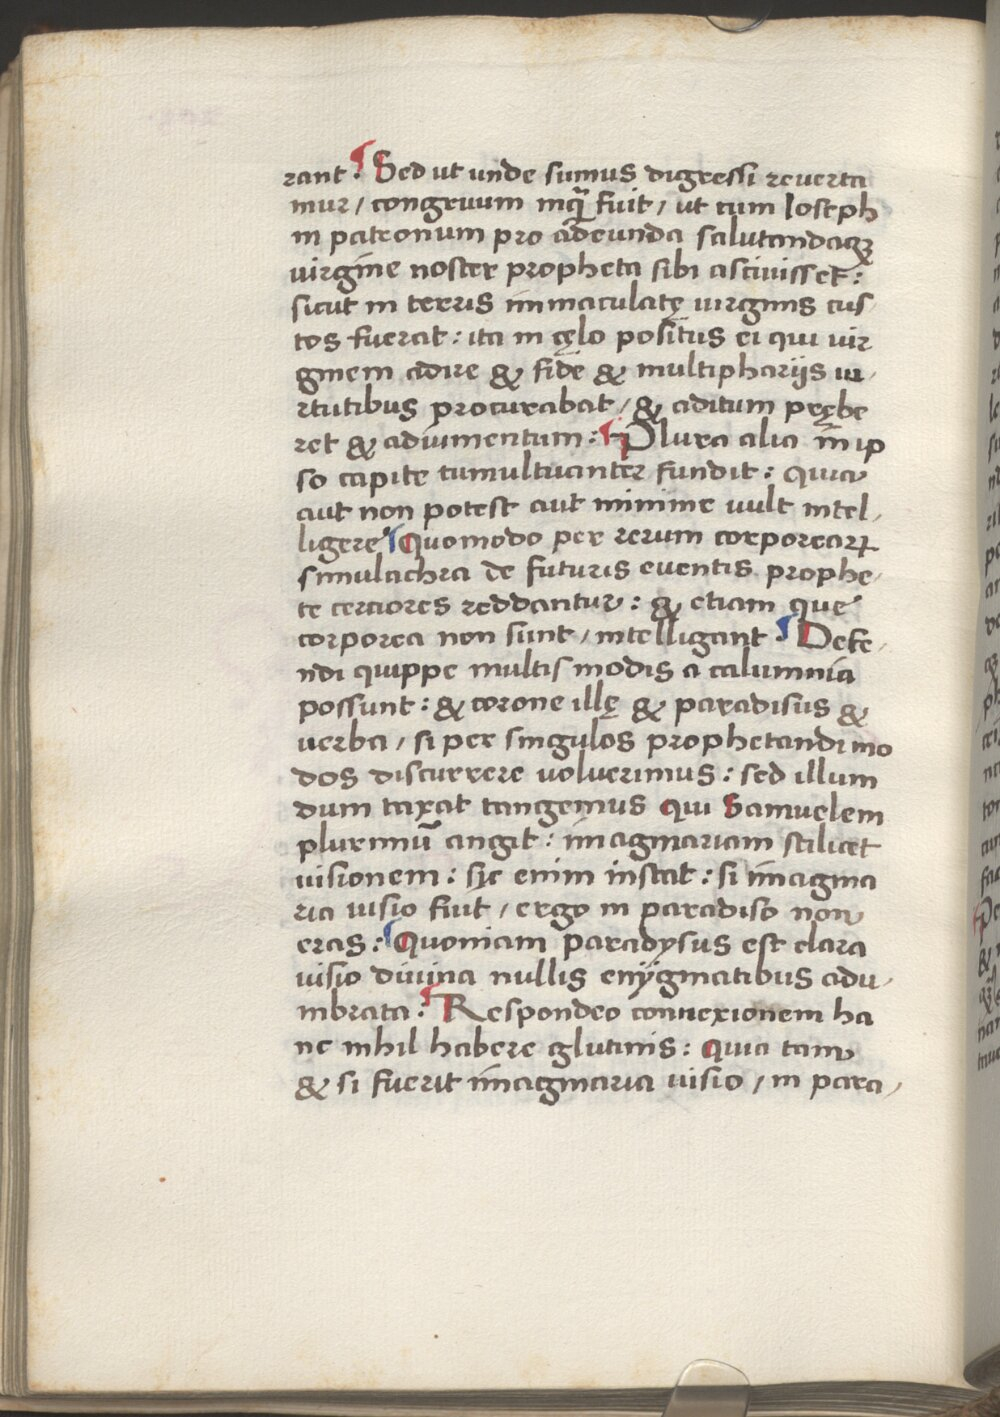 rant. ¶ Sed ut unde sumus digressi reuerta
mur / congruum inq̃ fuit / ut cum Ioseph
in patronum pro adeunda salutandaqꝫ
virgine noster propheta sibi asciuisset:
sicut in terris immaculatę uirginis cus
tos fuerat: ita in cęlo positus ei qui uir
ginem adire & fide & multipharijs ui
rtutibus procurabat / & aditum prębe
ret & adiumentum: ¶ Plura alia in ip
so capite tumultuanter fundit: quia
aut non potest aut minime uult intel
ligere ¶ Quomodo per rerum corporearꝝ
simulachra de futuris euentis prophe
te cerciores reddantur: & etiam que
corporea non sunt / intelligant. ¶ Defe
ndi quippe multis modis a calumnia
possunt: & corone illę & paradisus &
uerba / si per singulos prophetandi mo
dos discurrere uoluerimus: sed illum
dum taxat tangemus qui Samuelem
plurimū angit: imaginariam scilicet
uisionem: sic enim instat: si imagina
ria uisio fuit / ergo in paradiso non
eras: ¶ Quoniam paradysus est clara
uisio diuina nullis enygmatibus adu
mbrata. ¶ Respondeo connexionem ha
nc nihil habere glutinis: Quia tam
& si fuerit imaginaria uisio / in para